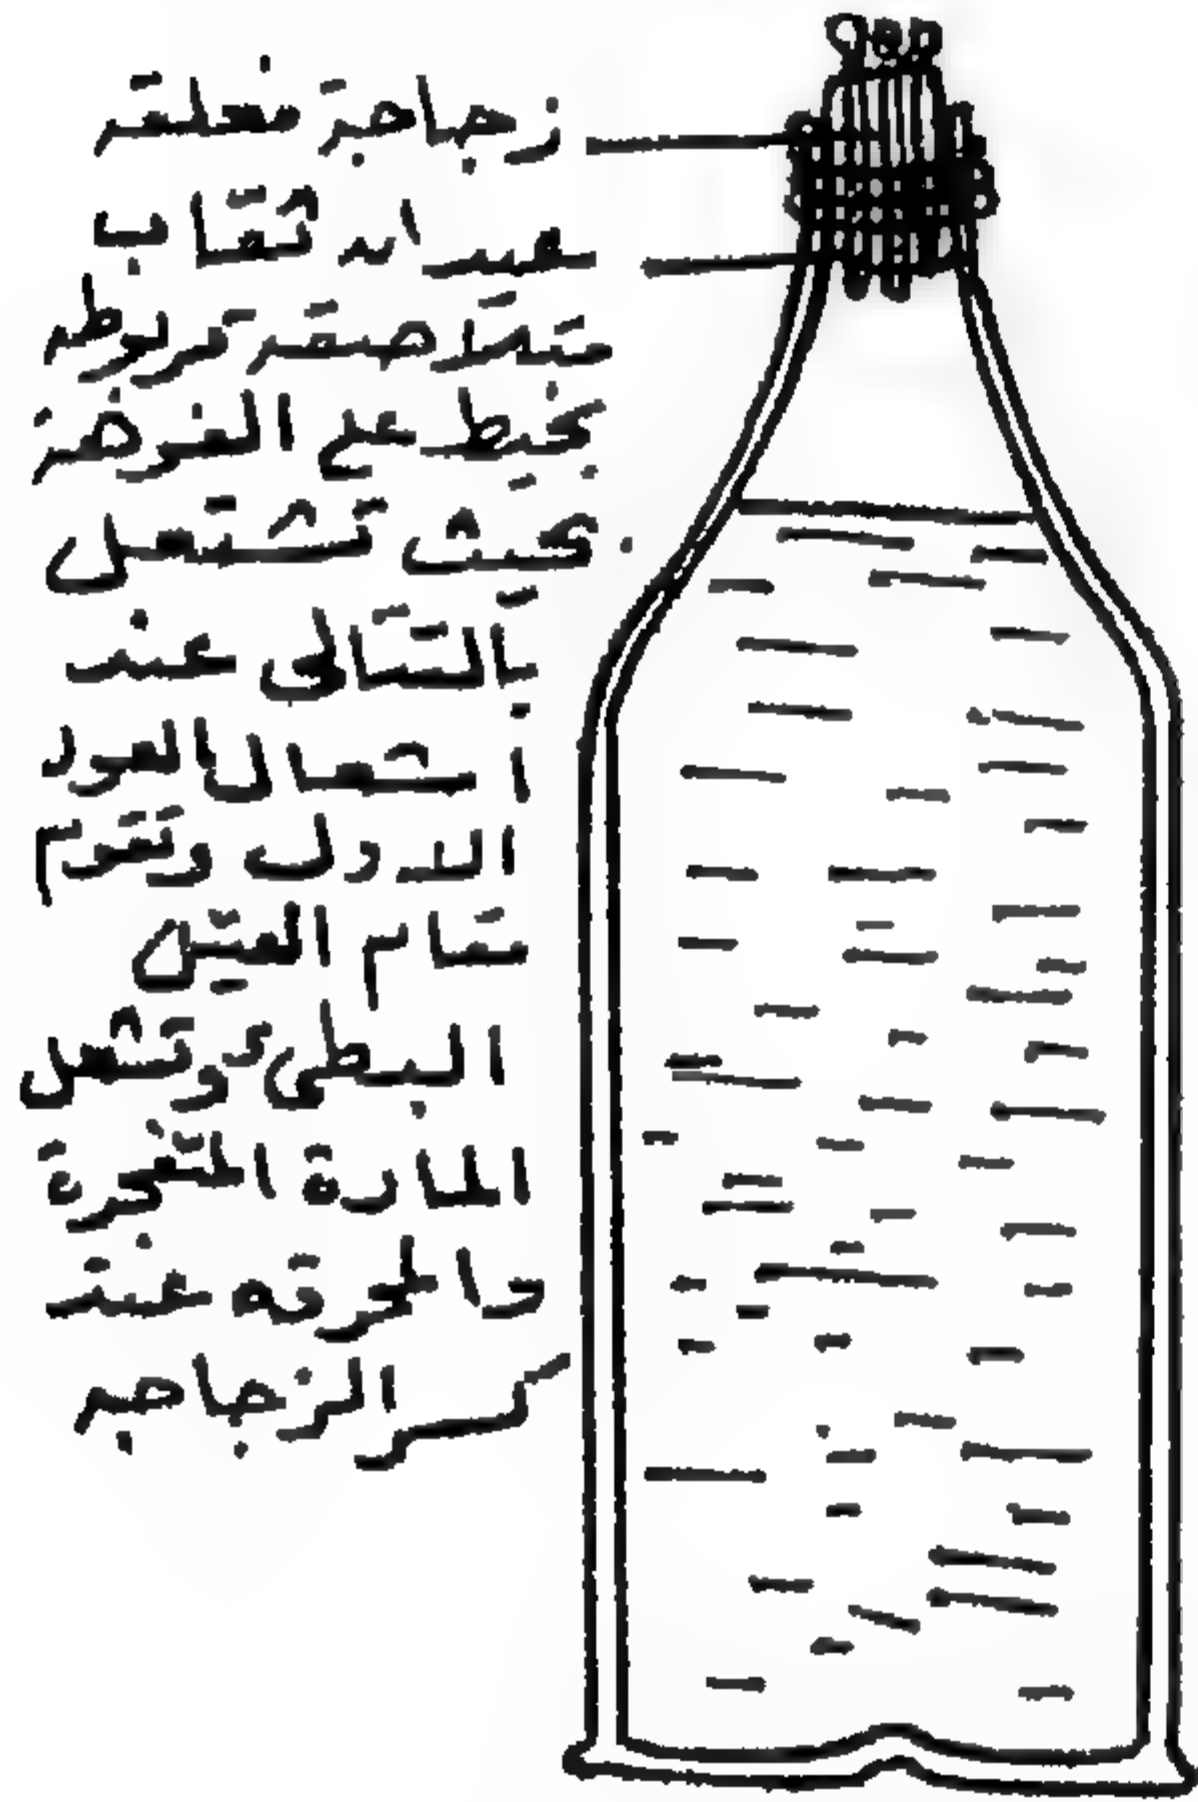 زجاجة مغلقة
عيدان ثقاب
متلاصقة مربوطه
بخيط على الفوهة
بحيث تشتعل
بالتتالي عند
اشتعال العود
الاول وتقوم
مقام الفتيل
البطيء وتشعل
المادة المتفجرة
والحرقه عند
كسر الزجاجه